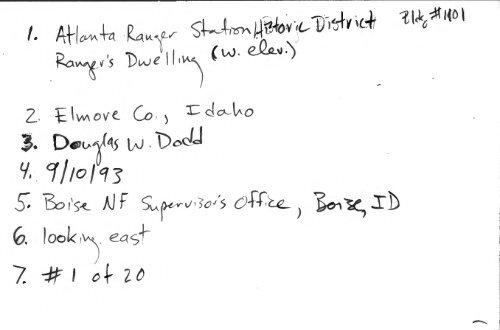 1. Atlanta Ranger Station Historic District Bldg #1101
Ranger's Dwelling (w. elev.)
2. Elmore Co., Idaho
3. Douglas W. Dodd
4. 9/10/93
5. Boise NF Supervisor's Office, Boise, ID
6. looking east
7. #1 of 20